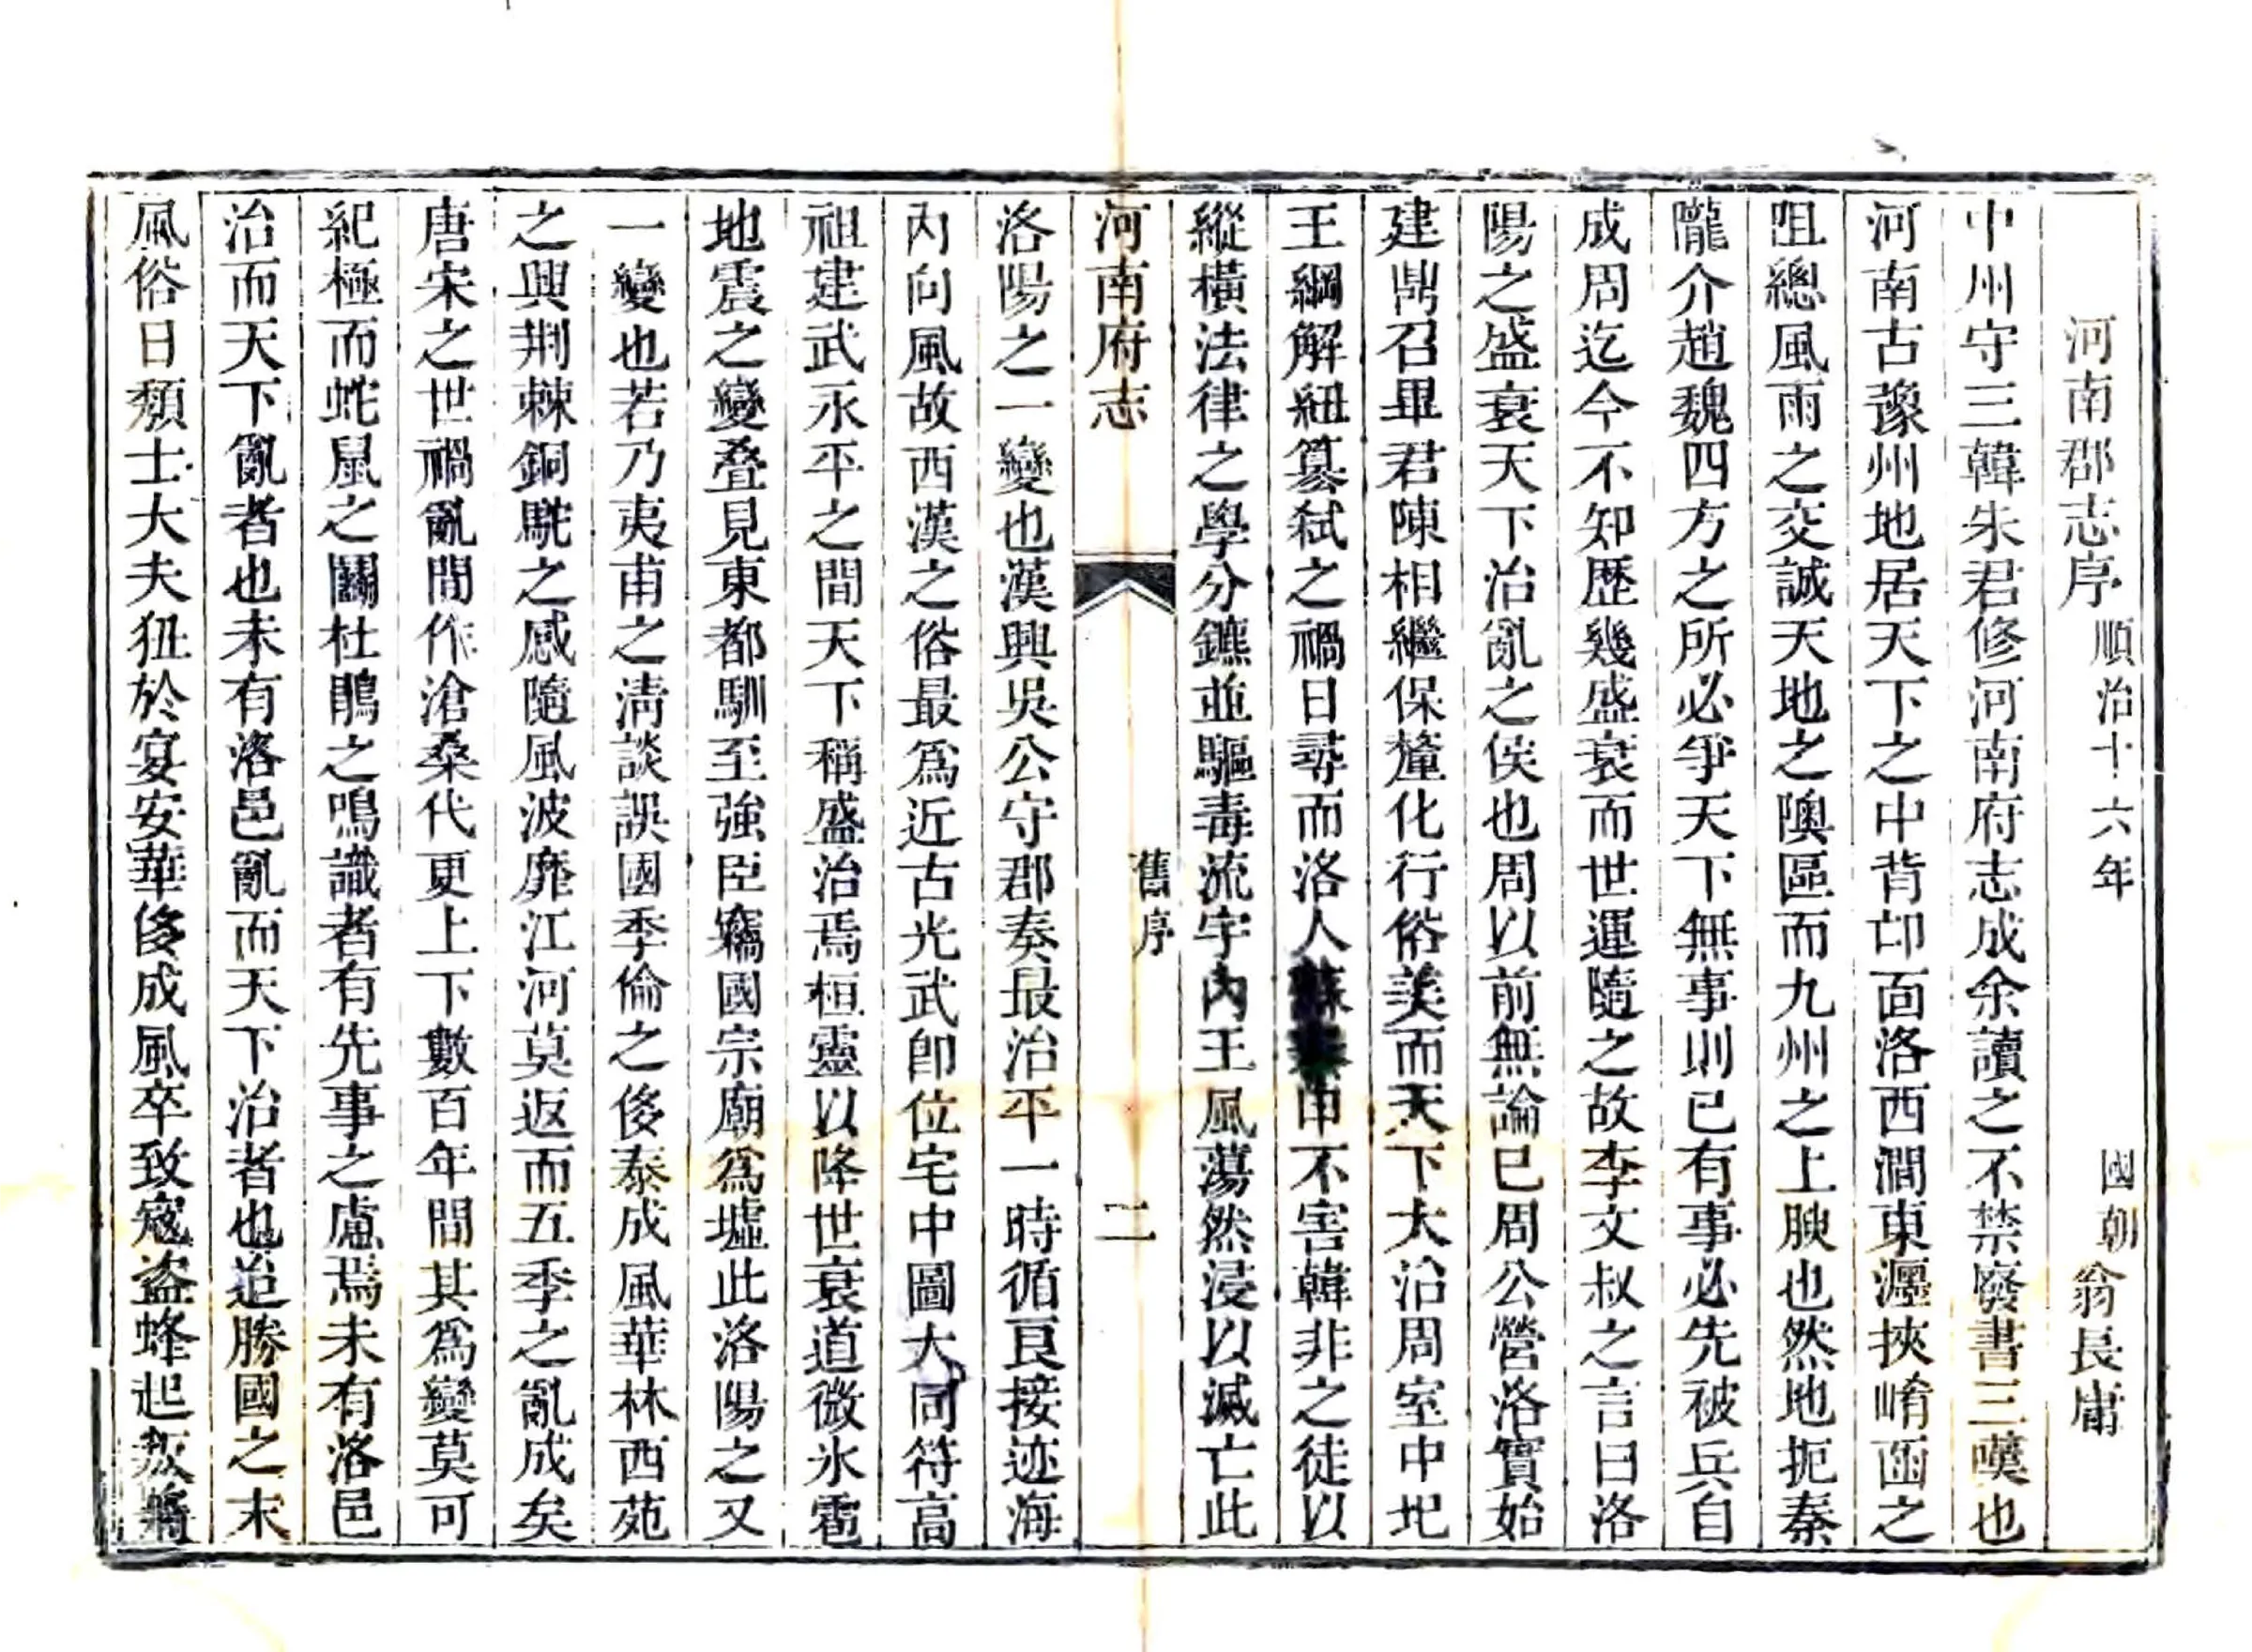 河南郡志序 順治十六年 國朝翁長庸
中州守三韓朱君修河南府志成余讀之不禁廢書三嘆也
河南古豫州地居天下之中背邙面洛西澗東瀍挾崤函之
阻總風雨之交誠天地之隩區而九州之上腴也然地扼秦
隴介趙魏四方之所必爭天下無事則已有事必先被兵自
成周迄今不知歷幾盛衰而世運隨之故李文叔之言曰洛
陽之盛衰天下治亂之侯也周以前無論已周公營洛實始
建鼎召畢君陳相繼保釐化行俗美而天下大治周室中圯
王綱解紐簒弑之禍日尋而洛人蘇秦申不害韓非之徒以
縱橫法律之學分鑣並驅毒流宇內王風蕩然浸以滅亡此
河南府志 舊序 二
洛陽之一變也漢興吳公守郡奏最治平一時循良接迹海
內向風故西漢之俗最爲近古光武卽位宅中圖大同符高
祖建武永平之間天下稱盛治焉桓靈以降世衰道微氷雹
地震之變叠見東都馴至強臣竊國宗廟爲墟此洛陽之又
一變也若乃夷甫之淸談誤國季倫之侈泰成風華林西苑
之興荆棘銅駝之感隨風波靡江河莫返而五季之亂成矣
唐宋之世禍亂間作滄桑代更上下數百年間其爲變莫可
紀極而蛇鼠之鬭杜鵑之鳴識者有先事之慮焉未有洛邑
治而天下亂者也未有洛邑亂而天下治者也迨勝國之末
風俗日頹士大夫狃於宴安華侈成風卒致寇盜蜂起叛將